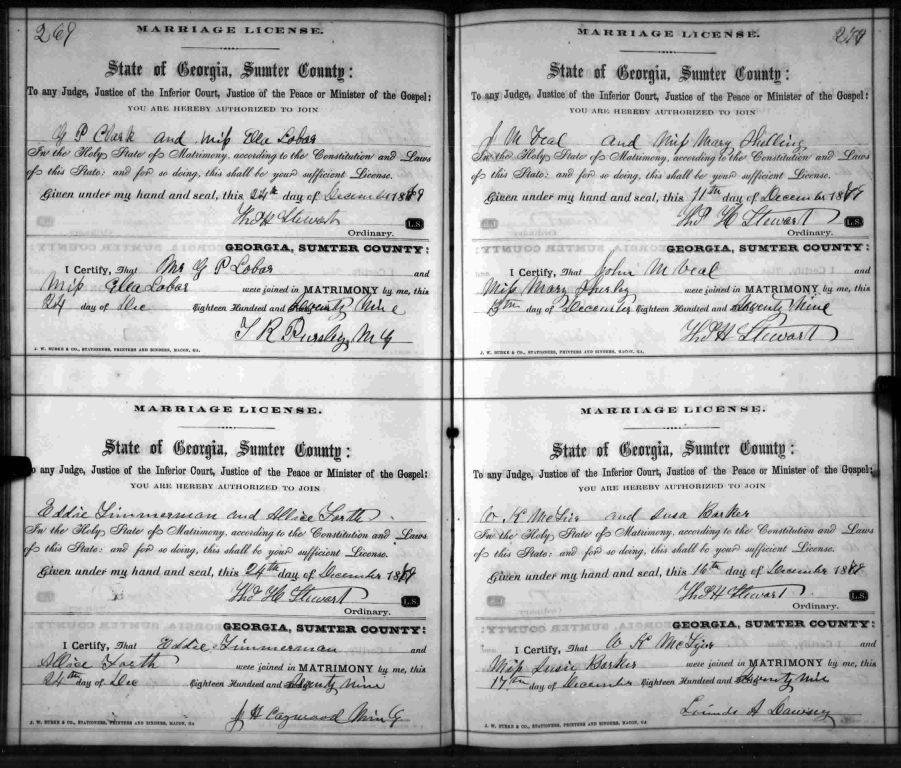 269
MARRIAGE LICENSE.
State of Georgia, Sumter County:
To any Judge, Justice of the Inferior Court, Justice of the Peace or Minister of the Gospel:
YOU ARE HEREBY AUTHORIZED TO JOIN
G P Clark and Miss Ella Lobar
In the Holy State of Matrimony, according to the Constitution and Laws
of this State: and for so doing, this shall be your sufficient License.
Given under my hand and seal, this 24th day of December 1879
Thos H Stewart L.S.
Ordinary.
GEORGIA, SUMTER COUNTY:
I Certify, That Mr G P Lobar and
Miss Ella Lobar were joined in MATRIMONY by me, this
24 day of Dec Eighteen Hundred and Seventy Nine
T R M G
J. W. BURKE & CO., STATIONERS, PRINTERS AND BINDERS, MACON, GA.
MARRIAGE LICENSE.
State of Georgia, Sumter County:
To any Judge, Justice of the Inferior Court, Justice of the Peace or Minister of the Gospel:
YOU ARE HEREBY AUTHORIZED TO JOIN
Eddie Timmerman and Allice Forth
In the Holy State of Matrimony, according to the Constitution and Laws
of this State: and for so doing, this shall be your sufficient License.
Given under my hand and seal, this 24th day of December 1879
Thos H Stewart L.S.
Ordinary.
GEORGIA, SUMTER COUNTY:
I Certify, That Eddie Timmerman and
Allice Forth were joined in MATRIMONY by me, this
24th day of Dec Eighteen Hundred and Seventy Nine
J H Min G
J. W. BURKE & CO., STATIONERS, PRINTERS AND BINDERS, MACON, GA
MARRIAGE LICENSE.
State of Georgia, Sumter County:
To any Judge, Justice of the Inferior Court, Justice of the Peace or Minister of the Gospel:
YOU ARE HEREBY AUTHORIZED TO JOIN
J M Veal and Miss Mary
In the Holy State of Matrimony, according to the Constitution and Laws
of this State: and for so doing, this shall be your sufficient License.
Given under my hand and seal, this 11th day of December 1879
Thos H Stewart L.S.
Ordinary.
GEORGIA, SUMTER COUNTY:
I Certify, That John M Veal and
Miss Mary were joined in MATRIMONY by me, this
day of December Eighteen Hundred and Seventy Nine
Thos H Stewart
J. W. BURKE & CO., STATIONERS, PRINTERS AND BINDERS, MACON, GA.
MARRIAGE LICENSE.
State of Georgia, Sumter County:
To any Judge, Justice of the Inferior Court, Justice of the Peace or Minister of the Gospel:
YOU ARE HEREBY AUTHORIZED TO JOIN
W K and Susa Barker
In the Holy State of Matrimony, according to the Constitution and Laws
of this State: and for so doing, this shall be your sufficient License.
Given under my hand and seal, this 16th day of December 1879
Thos H Stewart L.S.
Ordinary.
GEORGIA, SUMTER COUNTY:
I Certify, That W K McTyer and
Miss Susie Barker were joined in MATRIMONY by me, this
17th day of December Eighteen Hundred and Seventy nine
A Dawsey
J. W. BURKE & CO., STATIONERS, PRINTERS AND BINDERS, MACON, GA